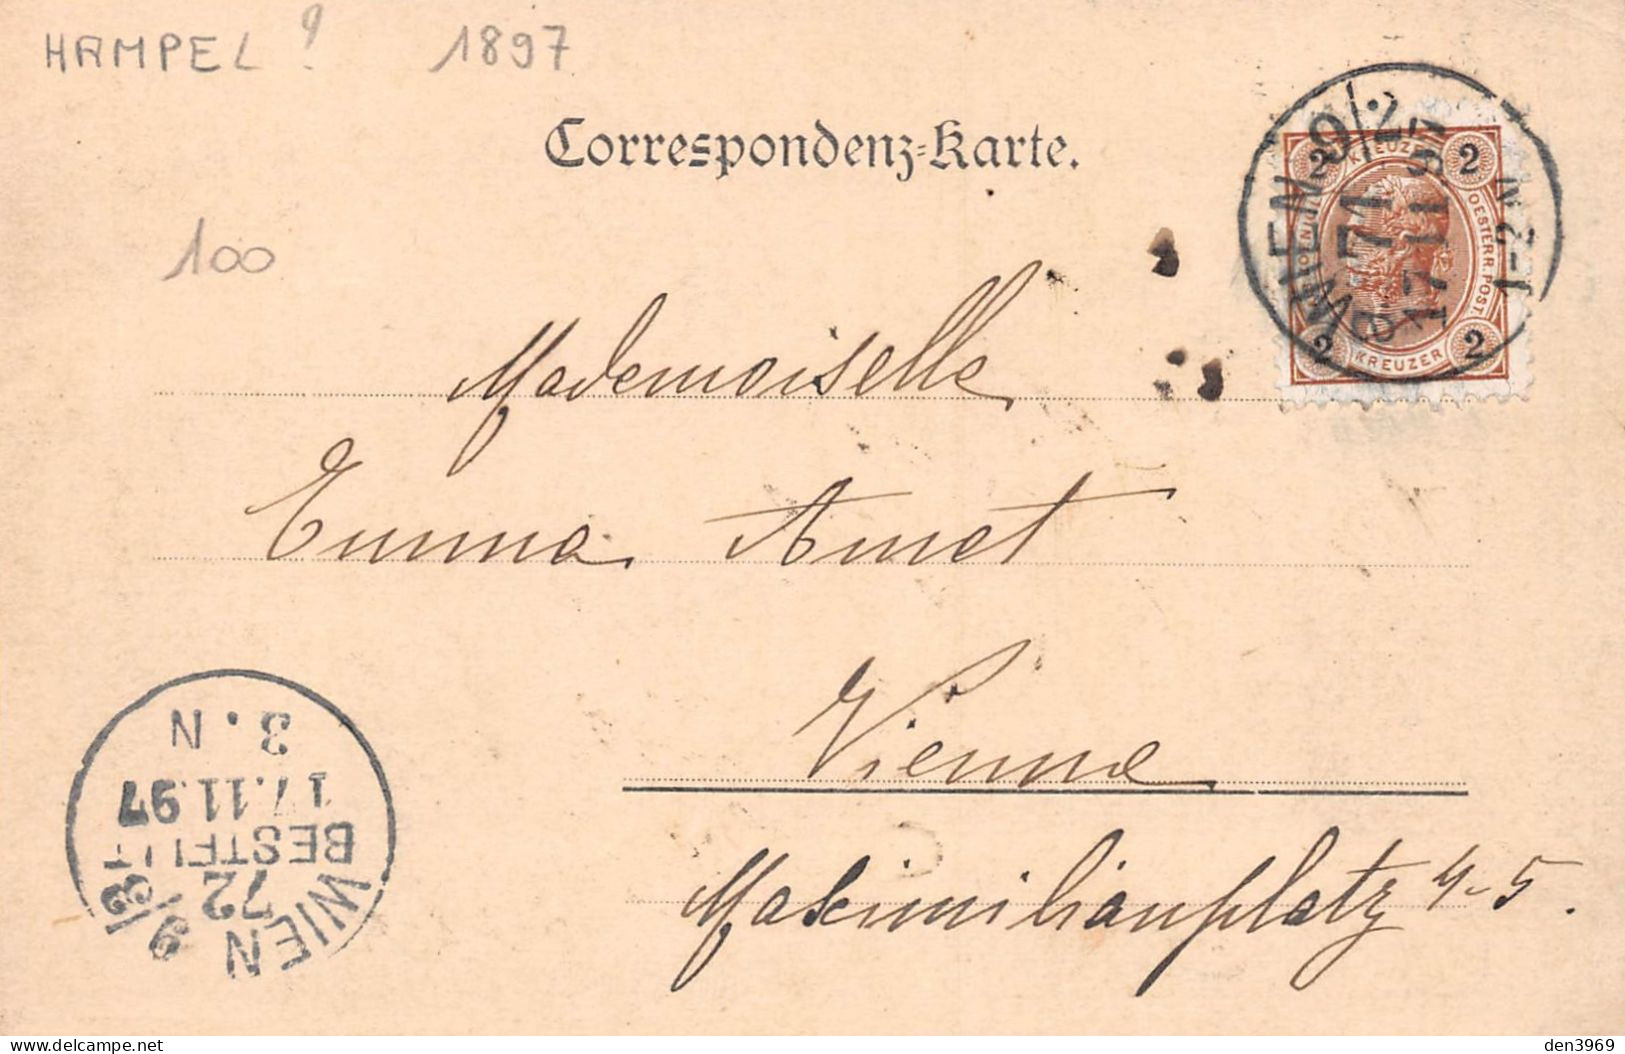 HAMPEL ? 1897
Correspondenz-Karte.
100
WIEN 9/2
71
17 11 97
1-2 N
2 KREUZER 2
OESTERR. POST
2 KREUZER 2
Mademoiselle
Emma Amet
Vienne
Maximilianplatz 4-5.
3. N
17.11.97
BESTELLT
72
WIEN 9/3
den3969